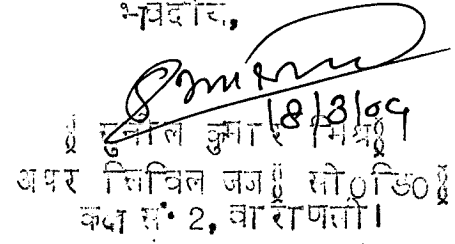 भवदीय,
18/3/09
॥ सुनील कुमार मिश्र ॥
अपर सिविल जज ॥ सी0डि0 ॥
कक्ष सं. 2, वाराणसी।